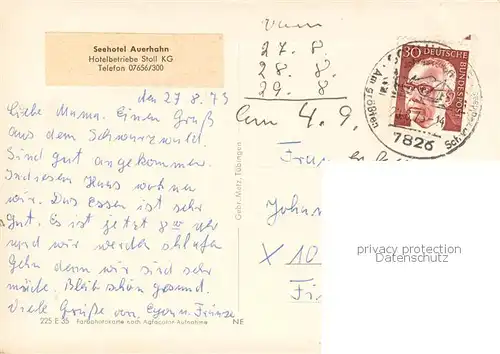 Seehotel Auerhahn
Hotelbetriebe Stoll KG
Telefon 07656/300
den 27.8.73
Liebe Mama. Einen Gruß
aus dem Schwarzwald
Sind gut angekommen.
In diesem Haus wohnen
wir. Das Essen ist sehr
Gut. Es ist jetzt 8 Uhr
und wir werden schlafen
Gehn denn wir sind sehr
müde. Bleib schön gesund.
Viele Grüße von Egon u.
225 E 35 Farbphotokarte nach Agfacolor-Aufnahme NE
Gebr. Metz, Tübingen
27. 8.
28. 8.
29. 8
am 4. 9.
30 DEUTSCHE BUNDESPOST
Am größten
7826
X 10
privacy protection
Datenschutz